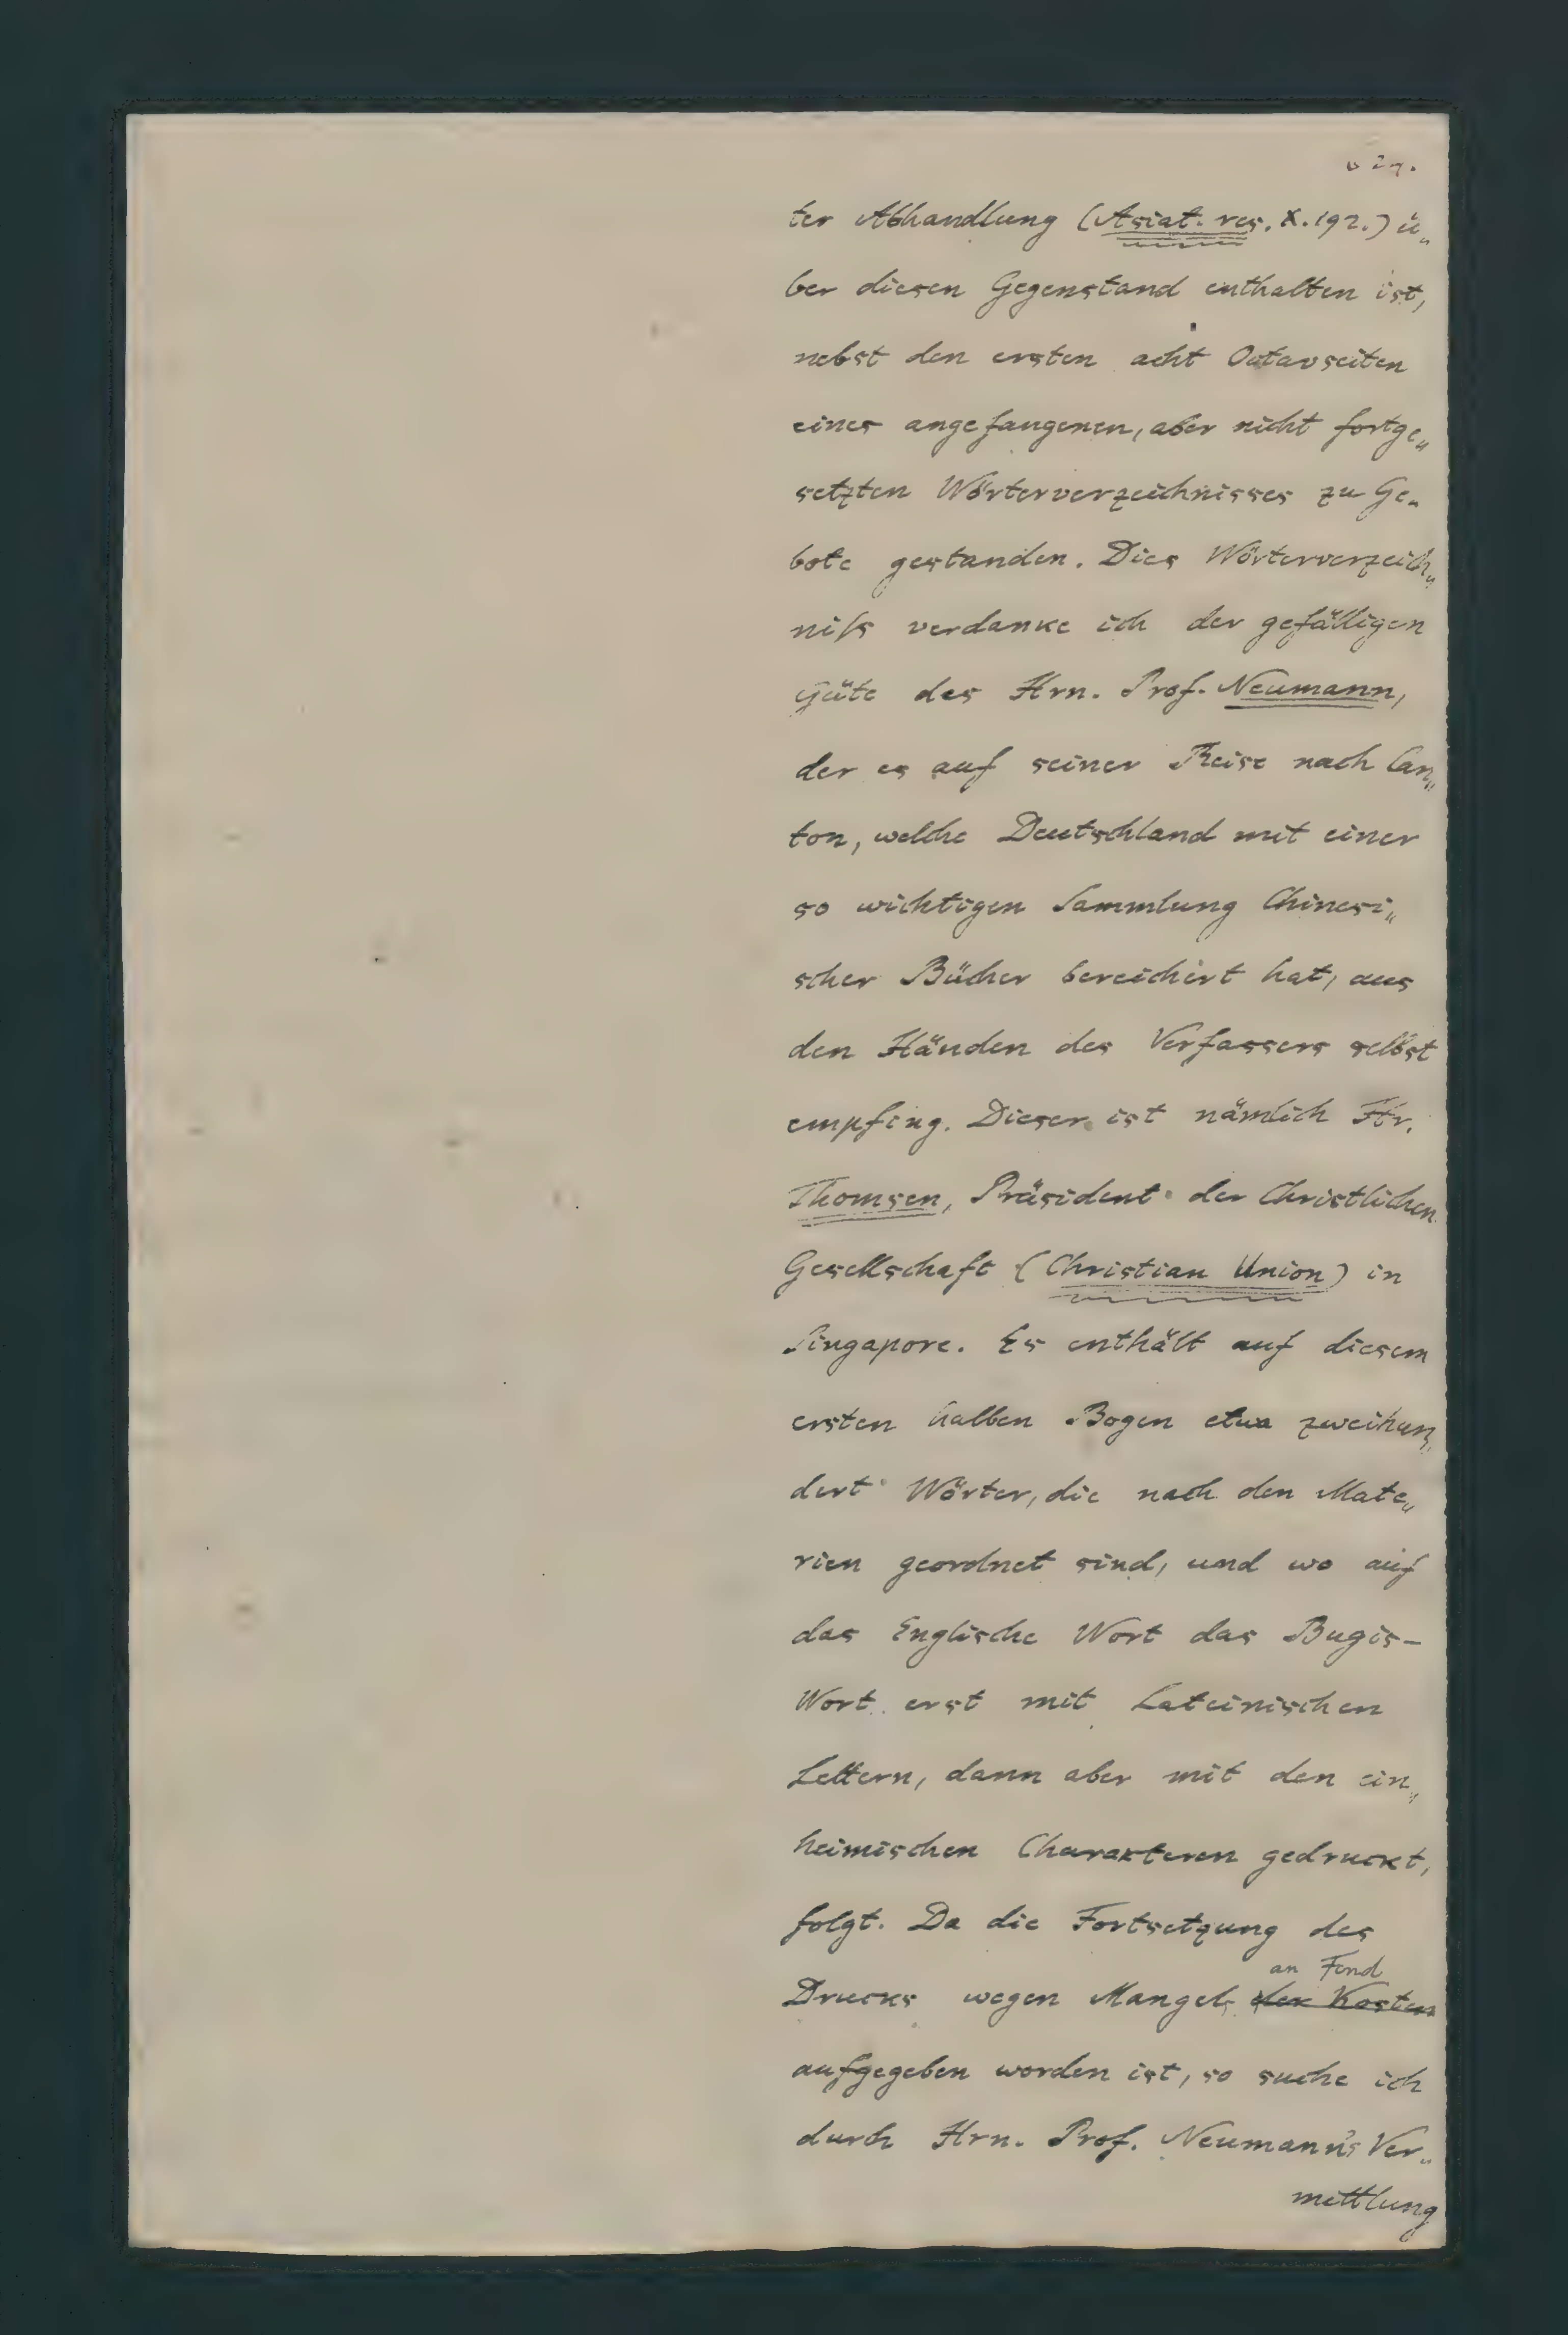 ter Abhandlung (Asiat. res. X. 192.) ü„
ber diesen Gegenstand enthalten ist,
nebst den ersten acht Octavseiten
eines angefangenen, aber nicht fortge„
setzten Wörterverzeichnisses zu Ge„
bote gestanden. Dies Wörterverzeich„
niſs verdanke ich der gefälligen
Güte des Hrn. Prof. Neumann,
der es auf seiner Reise nach Can„
ton, welche Deutschland mit einer
so wichtigen Sammlung Chinesi„
scher Bücher bereichert hat, aus
den Händen des Verfassers selbst
empfing. Dieser ist nämlich Hr.
Thomsen, Präsident der Christlichen
Gesellschaft (Christian Union) in
Singapore. Es enthält auf diesem
ersten halben Bogen etwa zweihun„
dert Wörter, die nach den Mate„
rien geordnet sind, und wo auf
das Englische Wort das Bugis-
Wort erst mit Lateinischen
Lettern, dann aber mit den ein„
heimischen Charakteren gedruckt,
folgt. Da die Fortsetzung des
an Fond
Drucks wegen Mangels der Kosten
aufgegeben worden ist, so suche ich
durch Hrn. Prof. Neumann's Ver„
mittlung